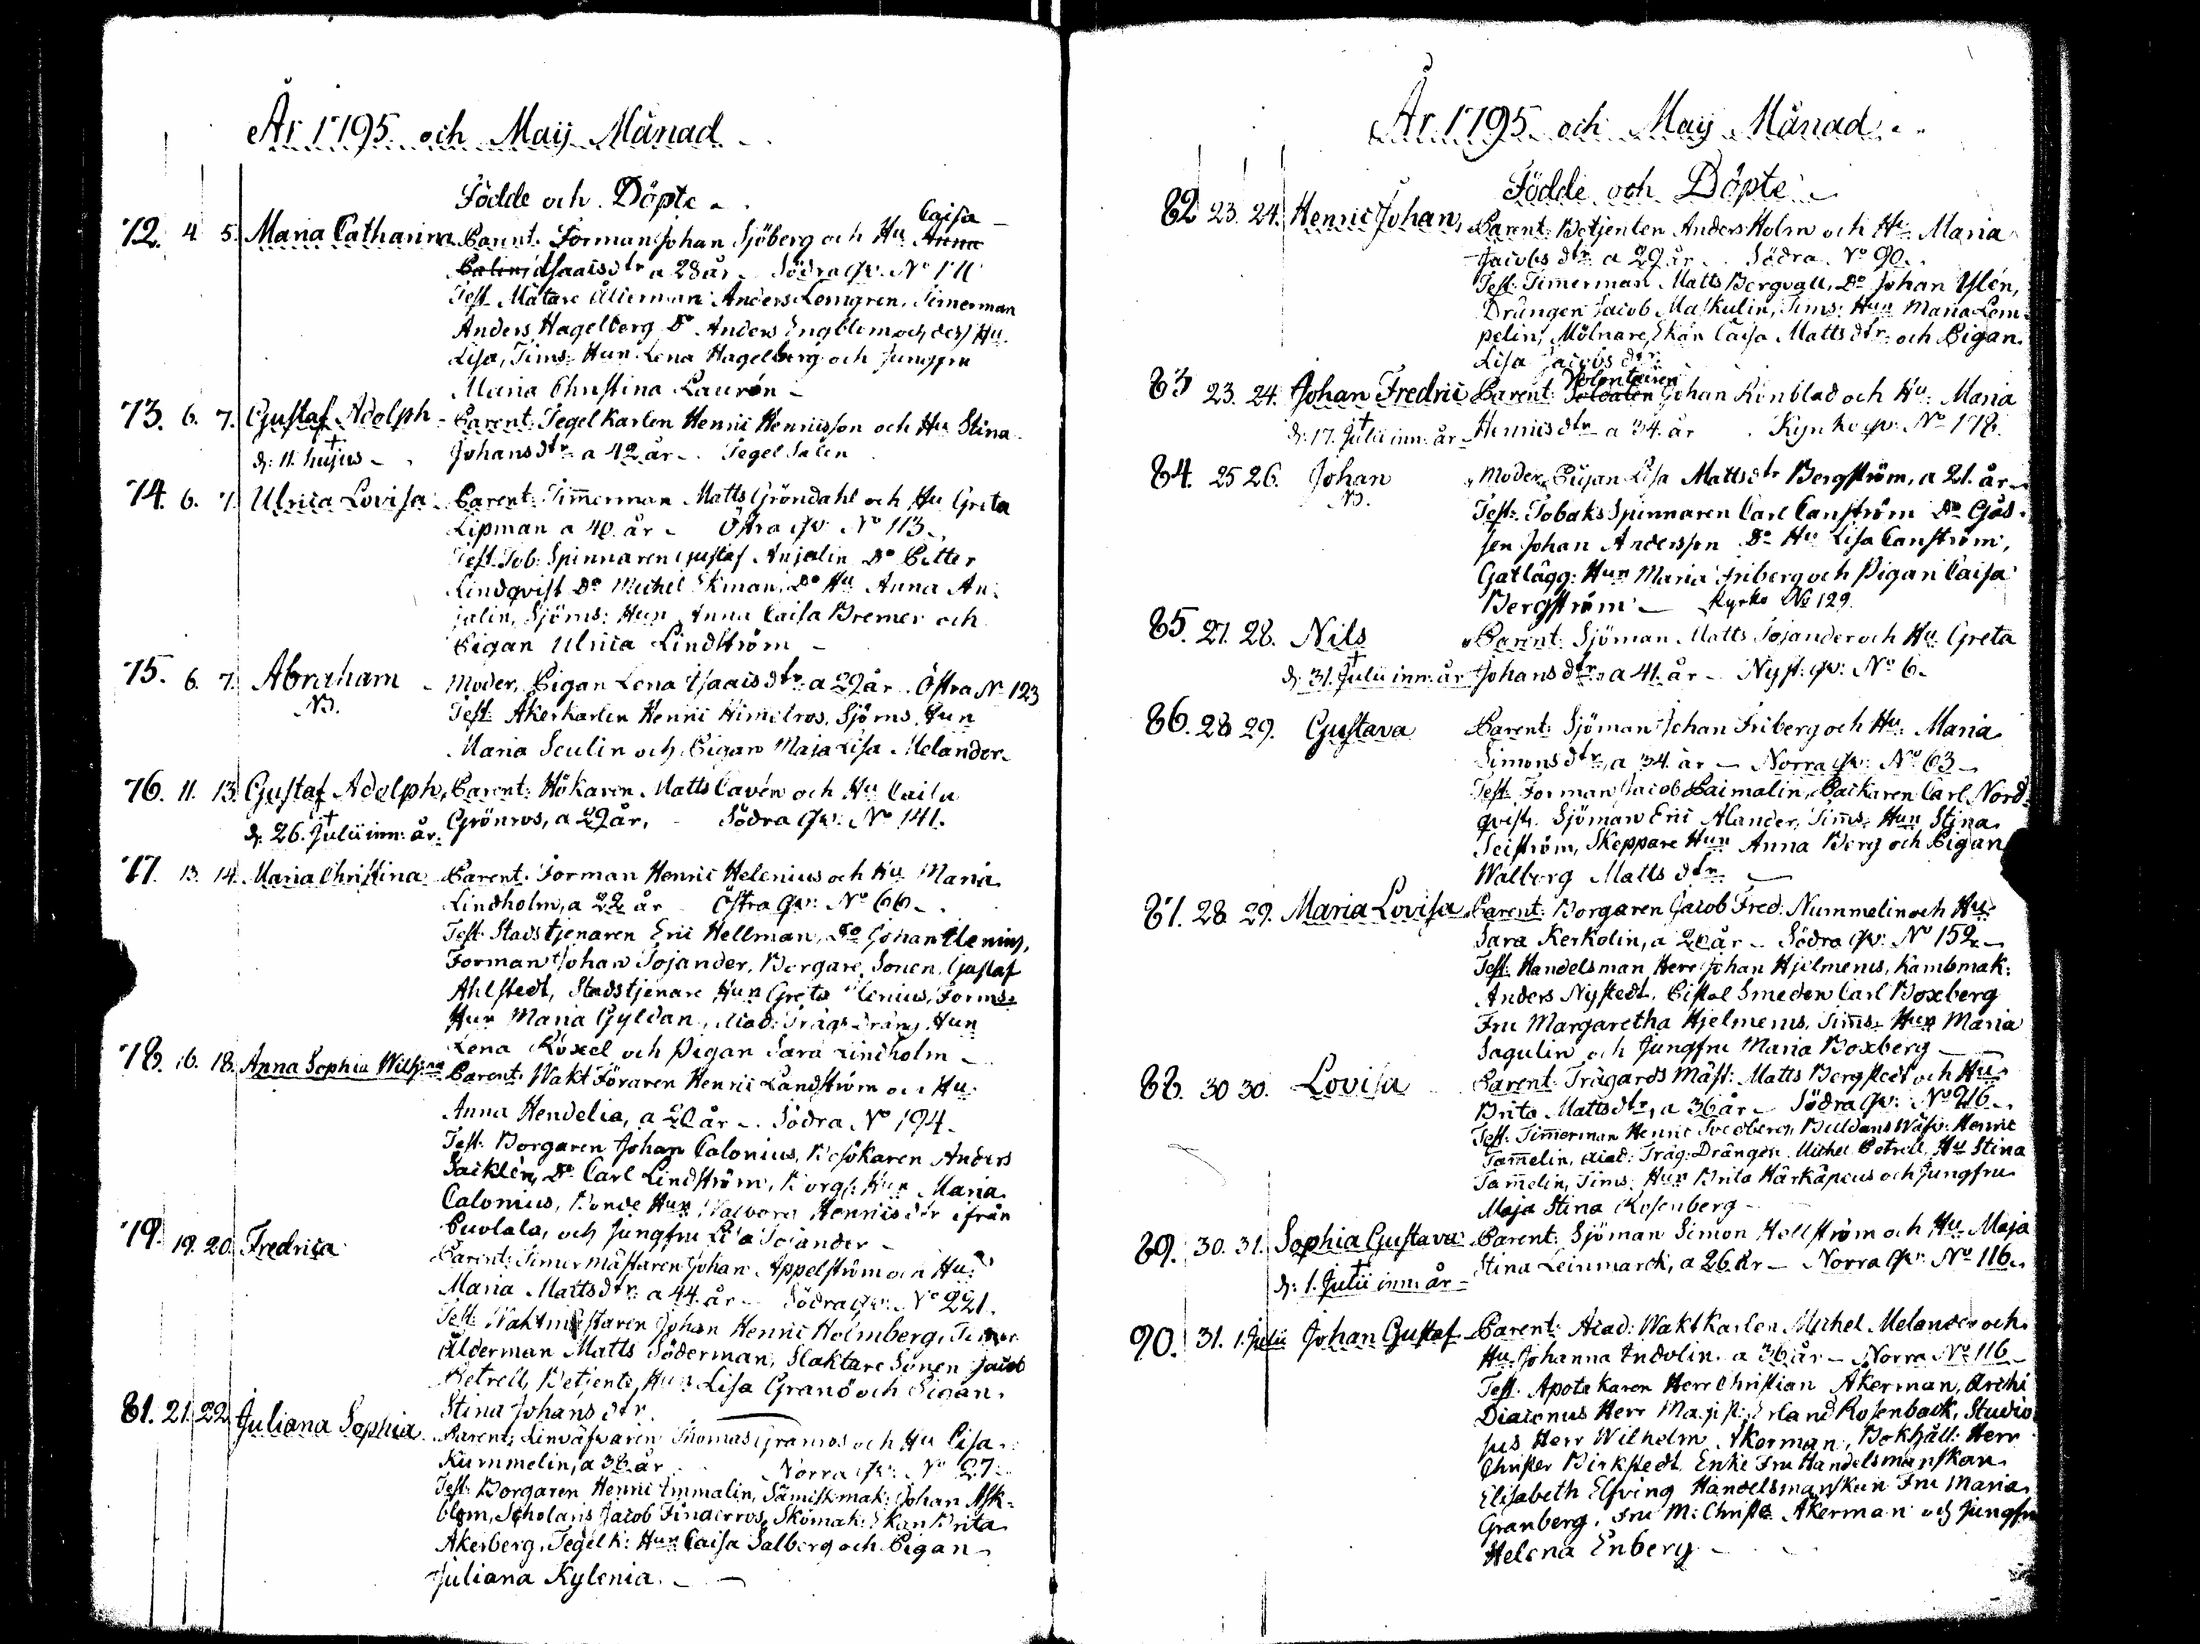 År 1795. och Maij Månad
Födde och Döpte
72. 4 5. Maria Catharina Parent. Forman Johan Sjöberg och Hu Caisa Anna
Isaacsdtr a 28 år. Södra qv. No 111
Test. Mätare Ålderman Anders Lemgren, Timerman
Anders Hagelberg Do Anders Engblom och dess Hu
Lisa, Tims: Hun Lena Hagelberg och Jungfru
Maria Christina Laurén
73. 6. 7. Gustaf Adolph Parent. Tegelkarlen Henric Henricsson och Hu Stina
d: 11. hujus † Johansdtr a 42 år. Tegel Salen
74. 6. 7. Ulrica Lovisa Parent: Timmerman Matts Gröndahl och Hu Greta
Lipman a 40 år Östra qv: No 113.
Test. Tob: Spinnaren Gustaf Anjalin Do Petter
Lindqvist Do Michel Ekman, Do Hu Anna An-
jalin, Sjöms: Hun Anna Caisa Bremer och
Pigan Ulrica Lindström
75. 6. 7. Abraham Moder, Pigan Lena Isaacsdtr a 29 år. Östra No 123
Test. Åkerkarlen Henric Himelros, Sjöms. Hun
Maria Seulin och Pigan Maja Lisa Melander.
76. 11. 13. Gustaf Adolph, Parent: Hökaren Matts Cavén och Hu Caisa
d: 26. Julii inn: år. † Grönros, a 29 år, Södra qv: No 141.
77. 13. 14. Maria Christina Parent. Forman Henric Helenius och Hu Maria
Lindholm, a 22 år Östra qv: No 66.
Test. Stadstjenaren Eric Hellman, Do Johan Ilenius,
Forman Johan Tojander, Borgare Sonen, Gustaf
Ahlstedt, Stadstjenare Hun Greta Ilenius, Forms:
Hun Maria Gyldan, Acad: Trägs drängs Hun
Lena Roxel och Pigan Sara Lindholm
78. 16. 18. Anna Sophia Wilh:na Parent. Wakt Föraren Henric Landström och Hu:
Anna Hendelia, a 20 år. Södra No 194.
Test. Borgaren Johan Calonius, Besökaren Anders
Sacklén, Do Carl Lindström, Borg: Hun Maria
Calonius, Bonde Hun Walborg Henricsdtr ifrån
Cuvlala, och Jungfru Lisa Tojander
79. 19. 20. Fredrica Parent: Timermästaren Johan Appelström och Hu:
Maria Mattsdtr: a 44. år Södra qv: No 221.
Test: Waktmästaren Johan Henric Holmberg, Timer
Ålderman Matts Söderman, Slaktare Sonen Jacob
Betrell, Betjente Hun Lisa Granö och Pigan.
Stina Johansdtr.
81. 21. 22. Juliana Sophia Parent: Linväfvaren Thomas Granros och Hu Lisa.
Kummelin, a 36 år Norra qv: No 27.
Test. Borgaren Henric Immalin, Sämiskmak: Johan Ask-
blom, Scholaris Jacob Finderros, Skomak: Ekan Brita
Åkerberg, Tegelk: Hun Caisa Salberg och Pigan
Juliana Kylenia.
År 1795. och Maij Månad
Födde och Döpte
82 23. 24. Henric Johan, Parent: Betjenten Anders Holm och Hu: Maria
Jacobsdtr: a 29 år. Södra. No 90.
Test: Timerman Matts Bergvall, Do Johan Uslén,
Drängen Jacob Maskulin, Tims: Hun Maria Lem-
pelin, Mölnare, Ekan Caisa Mattsdtr: och Pigan
Lisa Jacobsdtr:
83 23. 24. Johan Fredric Parent: Soldaten Volontairen Johan Rönblad och Hu: Maria
d: 17. Julii inn: år † Henricsdtr a 34. år Kyrko qv: No 178.
84. 25 26. Johan Moder, Pigan Lisa Mattsdtr Bergström, a 21. år
Test: Tobaks Spinnaren Carl Canström Do Gäs-
sen Johan Andersson Do Hu Lisa Canström,
Gatlägg: Hun Maria Friberg och Pigan Caisa
Bergström Kyrko No 129.
85. 27. 28. Nils Parent: Sjöman Matts Tojander och Hu: Greta
d: 31. Julii inn: år † Johansdtr: a 41. år Nyst: qv: No 6.
86. 28 29. Gustava Parent: Sjöman Johan Friberg och Hu: Maria
Simonsdtr, a 34. år Norra qv: No 63
Test. Forman Jacob Paimalin, Packaren Carl Nord-
qvist, Sjöman Eric Alander, Tims: Hun Stina
Seiström, Skeppare Hun Anna Berg och Pigan
Walborg Mattsdtr:
87. 28 29. Maria Lovisa Parent: Borgaren Jacob Fred: Nummelin och Hu:
Sara Kerkolin, a 20 år Södra qv: No 152.
Test: Handelsman Herr Johan Hjelmerus, Kambmak:
Anders Nystedt, Pistol Smeden Carl Boxberg
Fru Margaretha Hjelmerus, Tims: Hun Maria
Sagulin och Jungfru Maria Boxberg
88. 30 30. Lovisa Parent. Trägårds Mäst: Matts Bergstedt och Hu:
Brita Mattsdtr, a 36 år Södra qv: No 216.
Test: Timmerman Henric Svedberg, Buldans Wäfv: Henric
Tammelin, Acad: Träg: Drängen Michel Betrell, Hu Stina
Tammelin, Tims: Hun Brita Härkäpeus och Jungfru
Maja Stina Rosenberg
89. 30. 31. Sophia Gustava Parent: Sjöman Simon Hellström och Hu: Maja
d: 1. Julii inn: år † Stina Leinmarck, a 26. år Norra qv: No 116.
90. 31. 1. Junii Johan Gustaf Parent: Acad: Waktkarlen Michel Melander och
Hu Johanna Indolin. a 36 år Norra No 116
Test. Apotekaren Herr Christian Åkerman, Archi
Diaconus Herr Magist: Erland Rosenback, Studio-
sus Herr Wilhelm Åkerman, Bokhåll: Herr
Christer Birkstedt. Enke Fru Handelsmanskan
Elisabeth Elfving Handelsmanskan Fru Maria
Granberg, Fru M: Christ: Åkerman och Jungfru
Helena Enberg